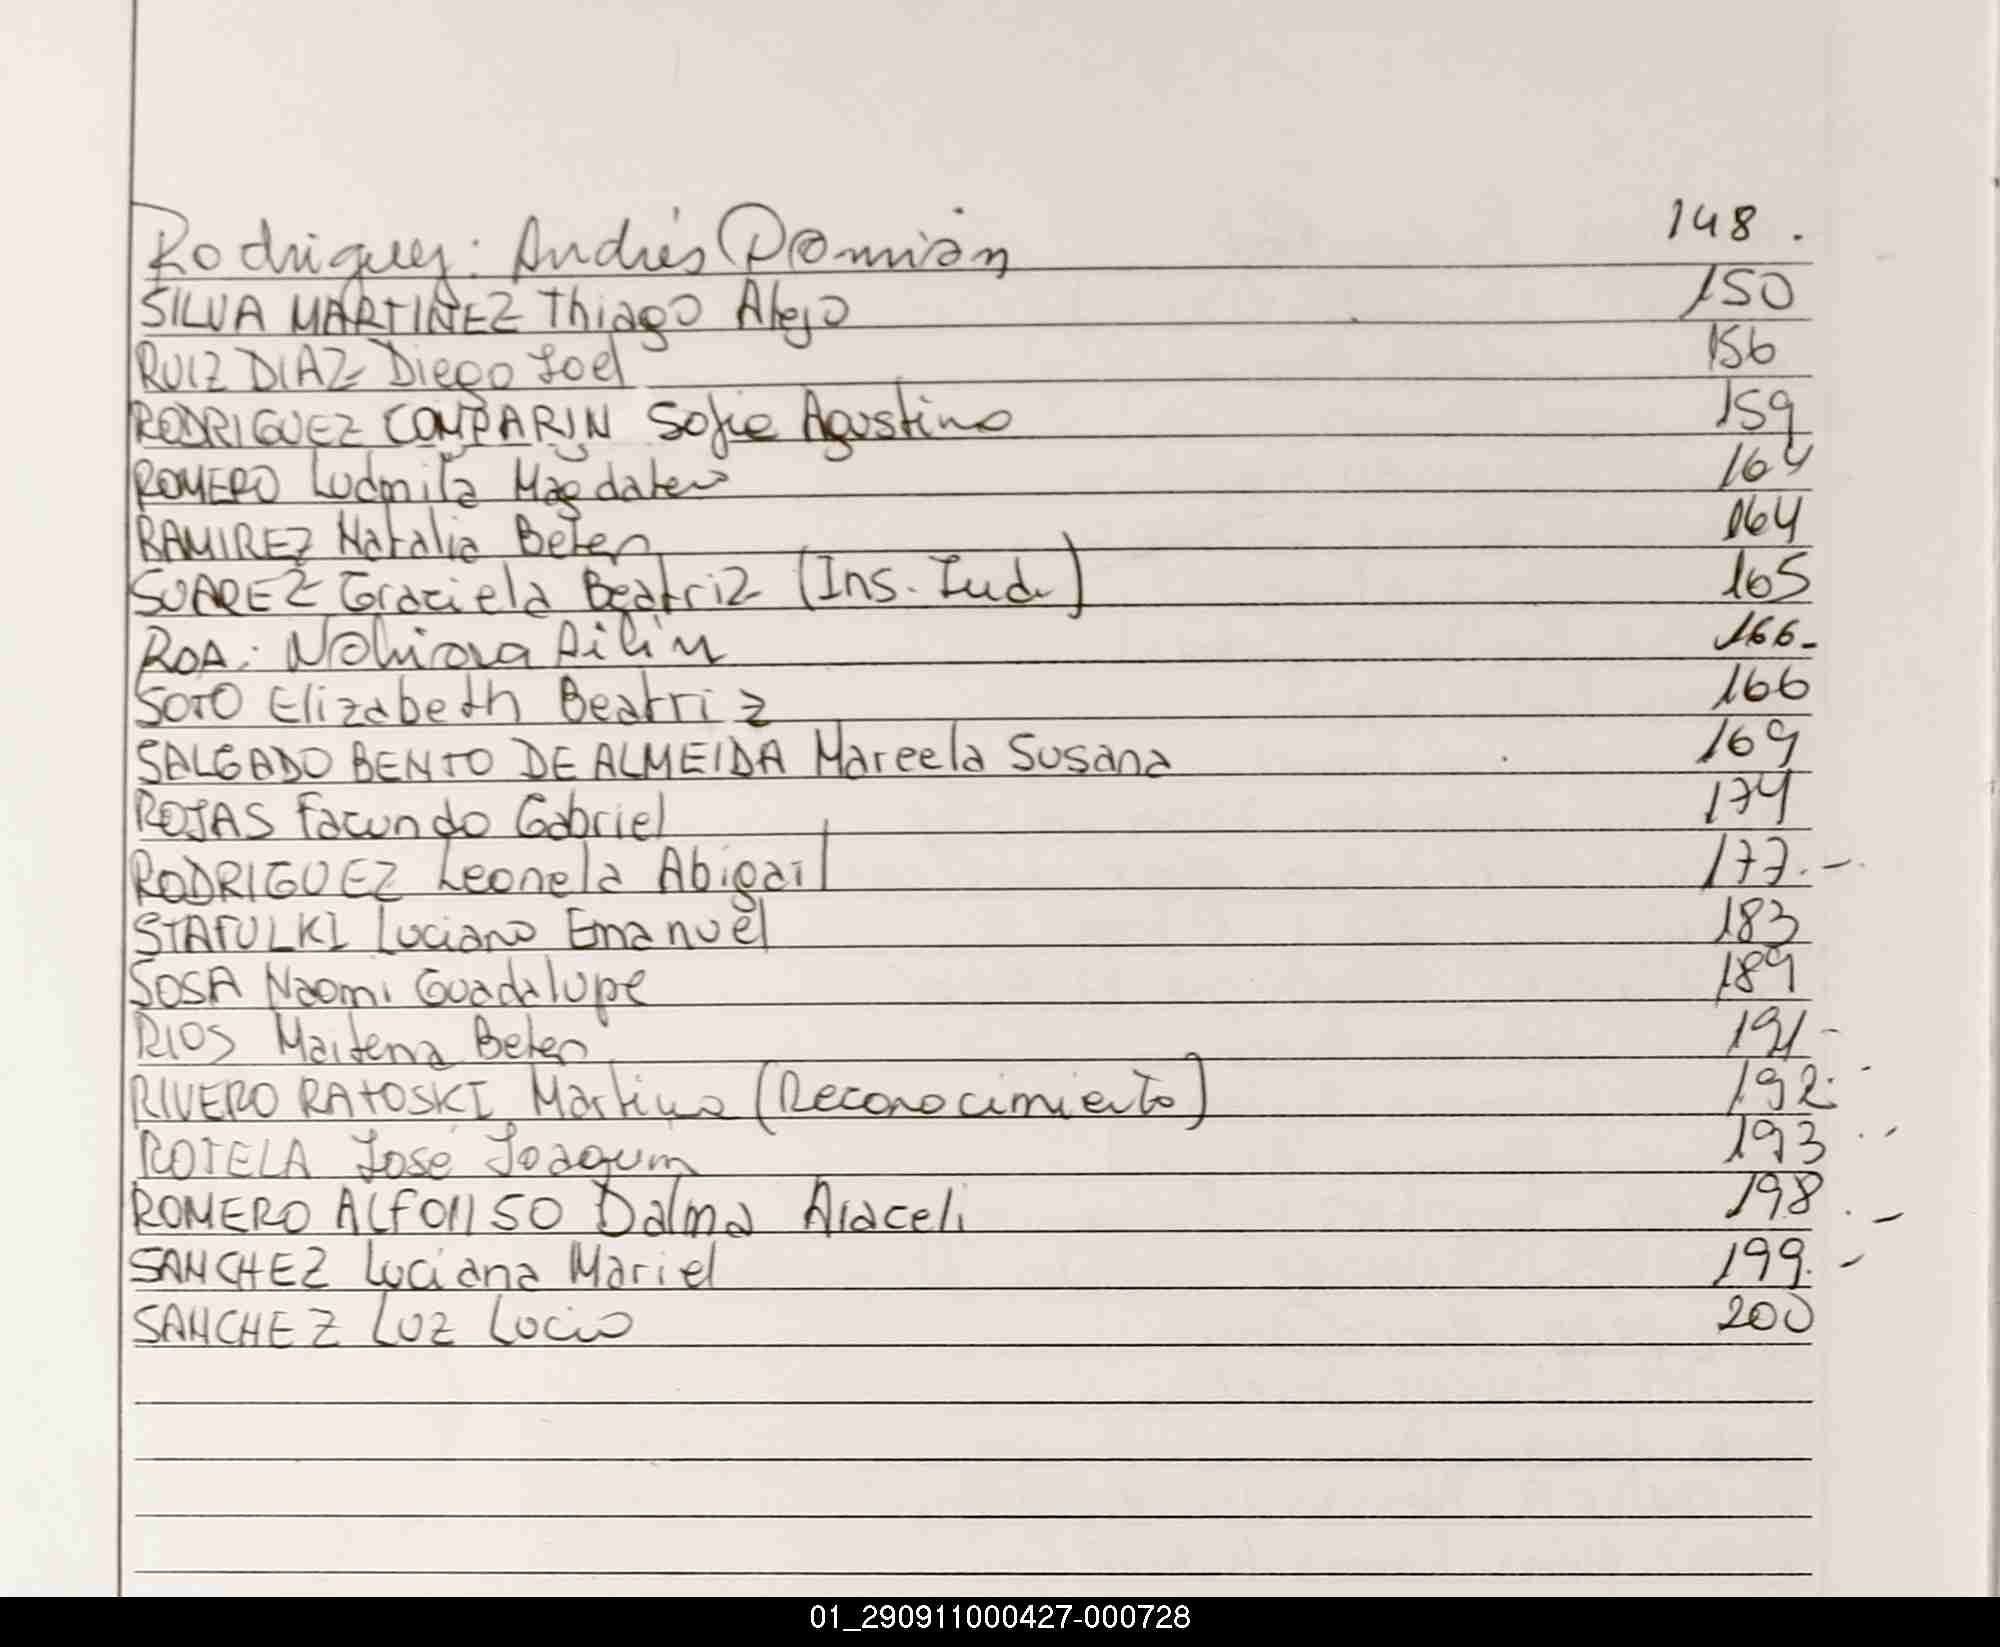 Rodriguez: Andrés Damián 148.
SILVA MARTINEZ Thiago Alejo 150
RUIZ DIAZ Diego Joel 156
RODRIGUEZ COMPARIN Sofia Agostina 159
ROMERO Ludmila Magdalena 164
RAMIREZ Natalia Belen 164
SUAREZ Graciela Beatriz (Ins. Jud.) 165
ROA: Nahiara Ailín 166-
SOTO Elizabeth Beatriz 166
SALGADO BENTO DE ALMEIDA Marcela Susana 169
ROJAS Facundo Gabriel 174
RODRIGUEZ Leonela Abigail 177.-
STAFULKI Luciano Emanuel 183
SOSA Naomi Guadalupe 189
RIOS Maitena Belen 191-
RIVERO RATOSKI Martina (Reconocimiento) 192.-
ROTELA José Joaquin 193.-
ROMERO ALFONSO Dalma Araceli 198.-
SANCHEZ Luciana Mariel 199.-
SANCHEZ Luz Lucia 200
01_290911000427-000728